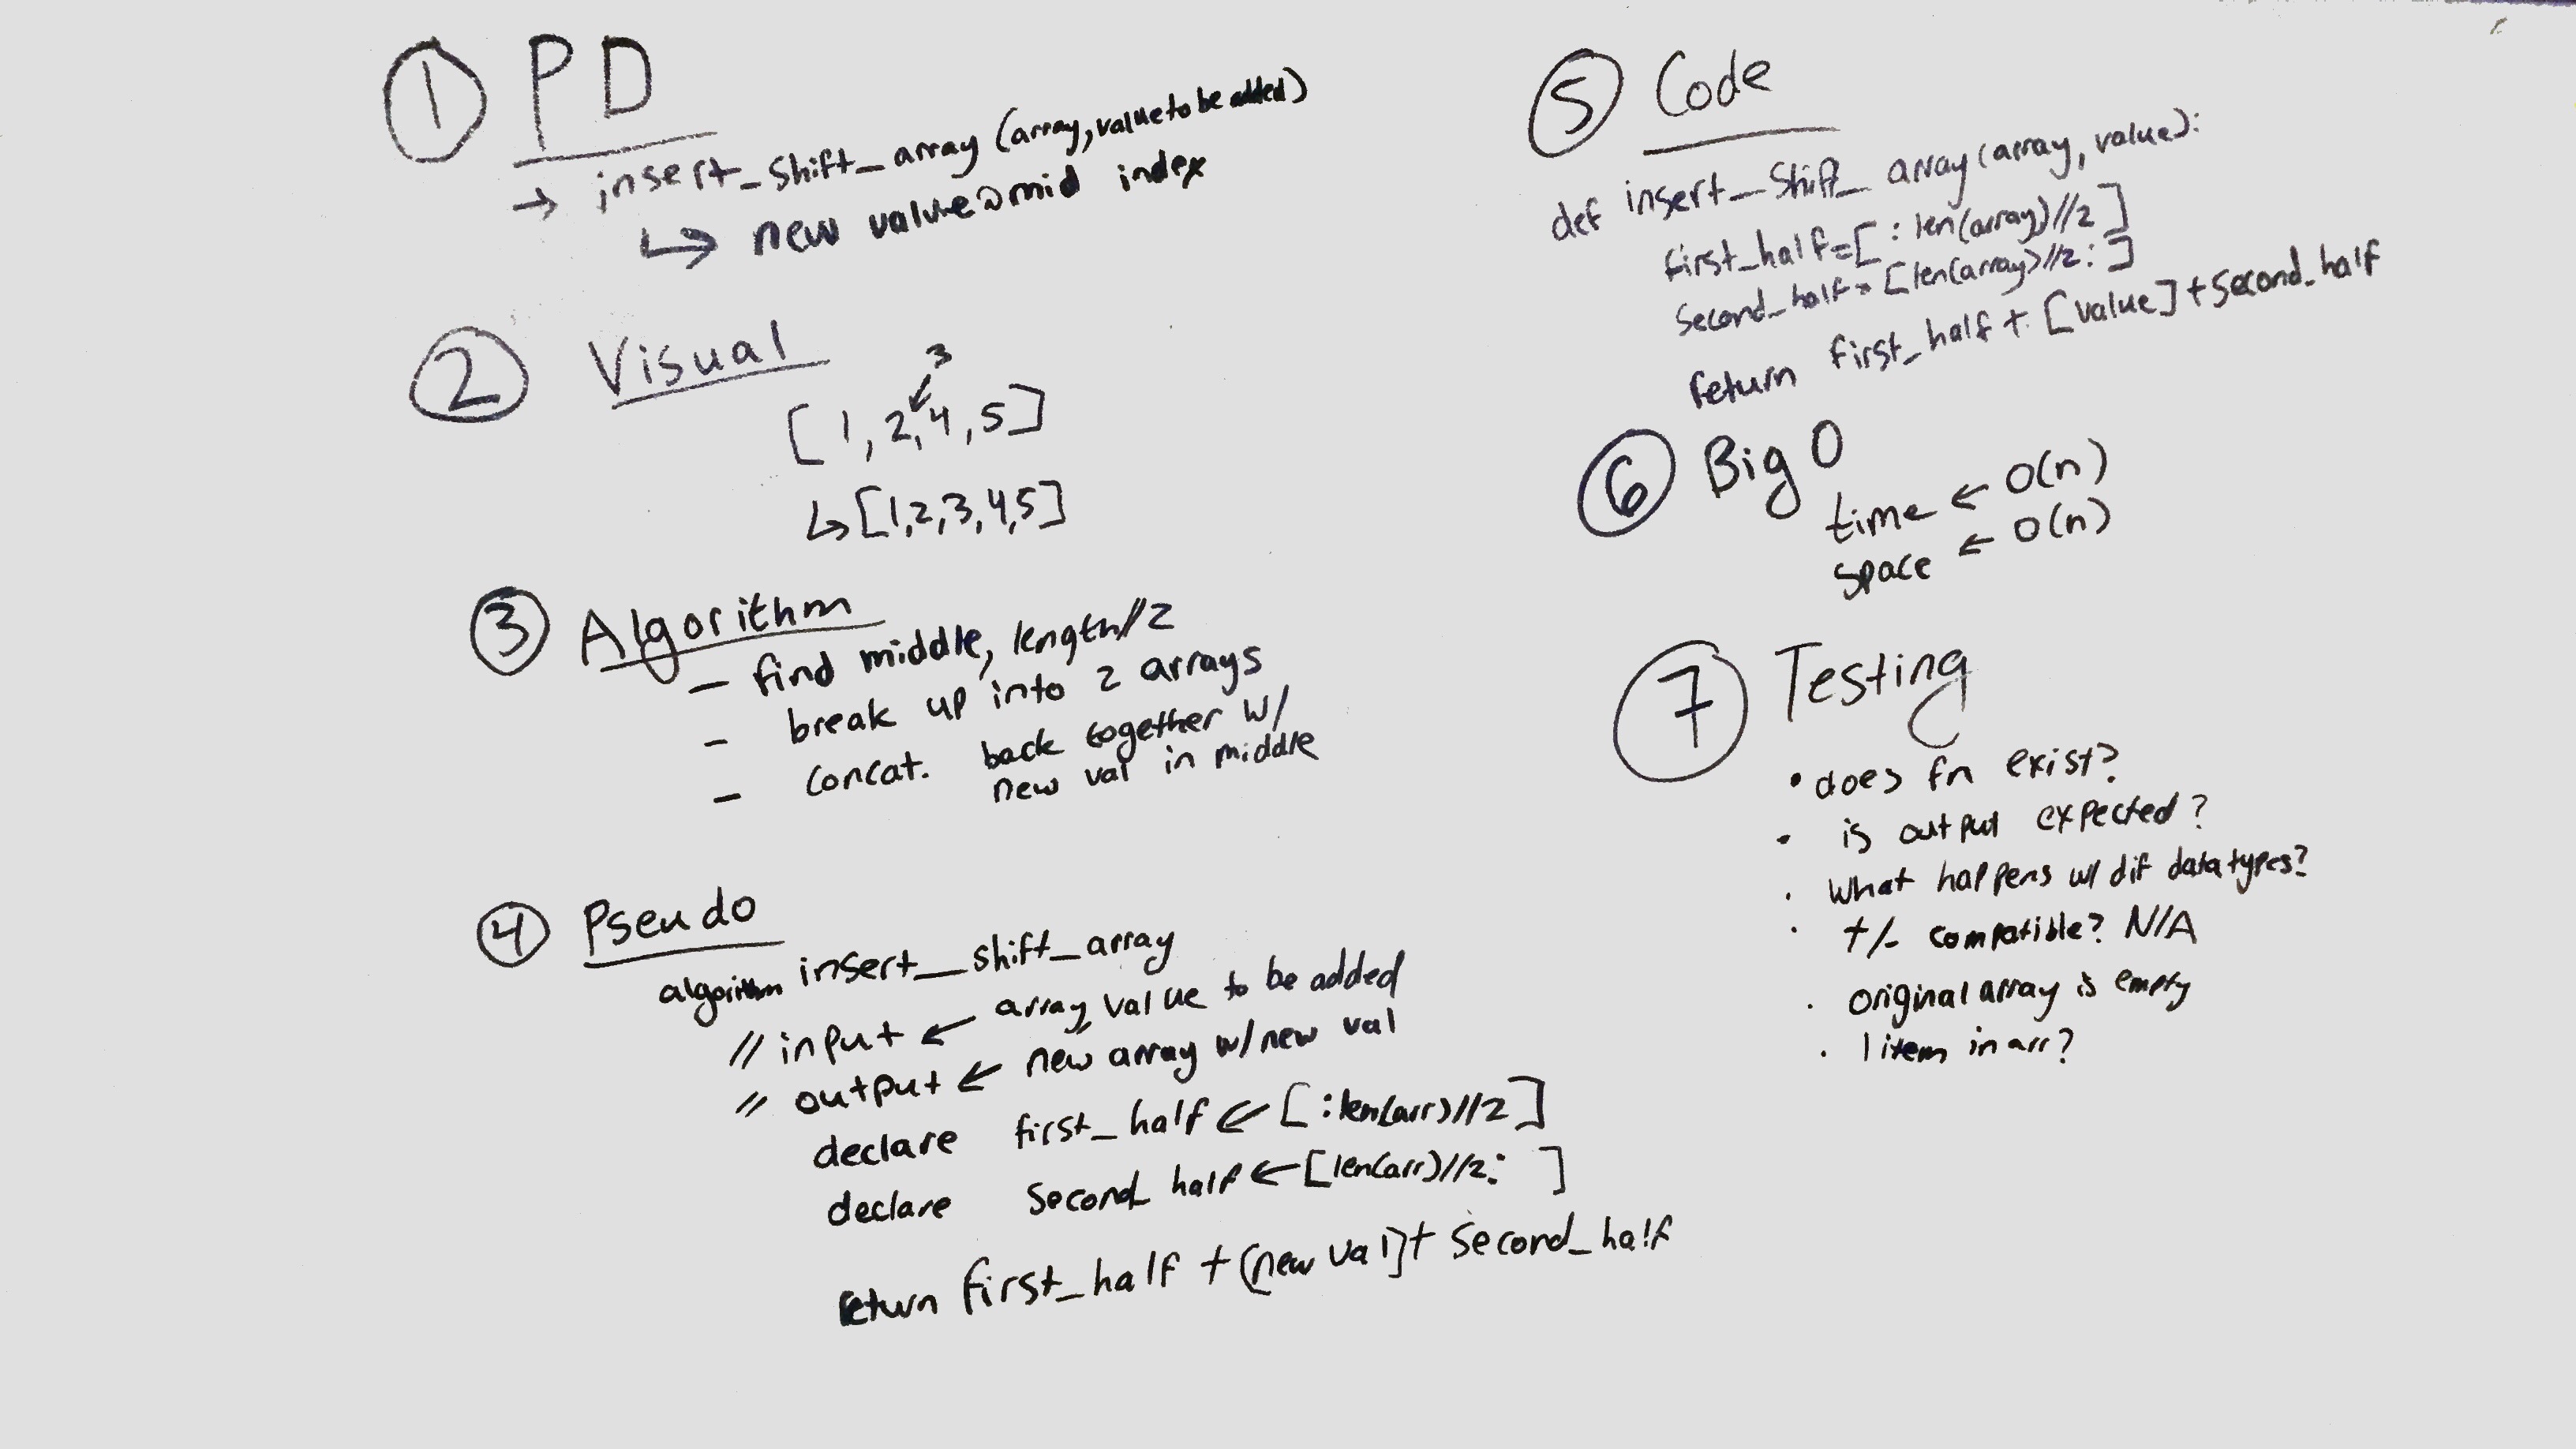 ① PD
→ insert_shift_array (array, value to be added)
↳ new value @ mid index
② Visual
3
[1, 2, 4, 5]
↳ [1,2,3,4,5]
③ Algorithm
– find middle, length//2
– break up into 2 arrays
– concat. back together w/
new val in middle
④ Pseudo
algorithm insert_shift_array
// input ← array, value to be added
// output ← new array w/ new val
declare first_half ← [:len(arr)//2]
declare second_half ← [len(arr)//2: ]
return first_half + [new val] + second_half
⑤ Code
def insert_shift_array(array, value):
first_half = [: len(array)//2]
second_half = [len(array)//2:]
return first_half + [value] + second_half
⑥ Big O
time ← O(n)
space ← O(n)
⑦ Testing
• does fn exist?
• is output expected?
• what happens w/ dif data types?
• +/- compatible? N/A
• original array is empty
• 1 item in arr?